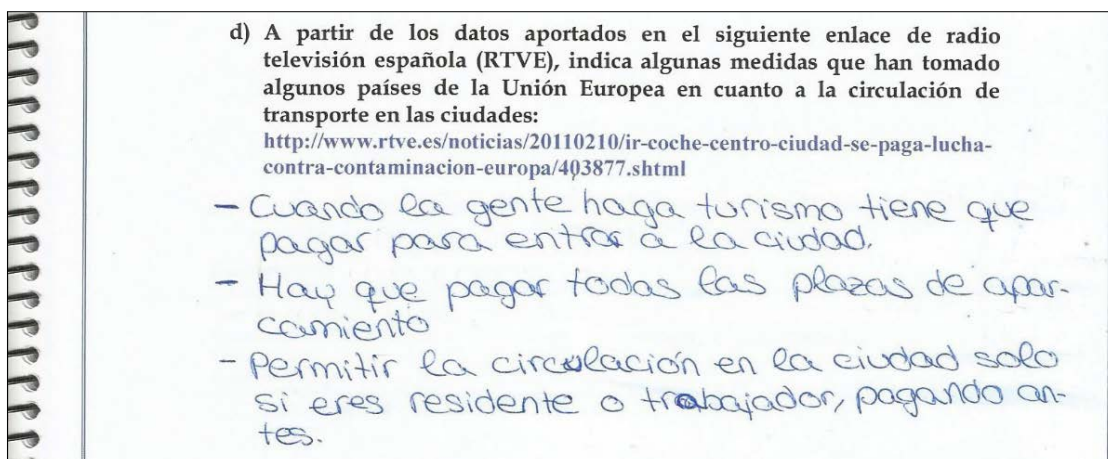 d) A partir de los datos aportados en el siguiente enlace de radio
televisión española (RTVE), indica algunas medidas que han tomado
algunos países de la Unión Europea en cuanto a la circulación de
transporte en las ciudades:
http://www.rtve.es/noticias/20110210/ir-coche-centro-ciudad-se-paga-lucha-
contra-contaminacion-europa/403877.shtml
- Cuando la gente haga turismo tiene que
pagar para entrar a la ciudad.
- Hay que pagar todas las plazas de apar-
camiento
- Permitir la circulación en la ciudad solo
si eres residente o trabajador, pagando an-
tes.